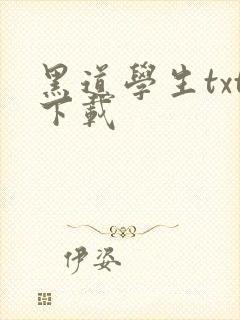 黑道學生txt
下載
伊姿